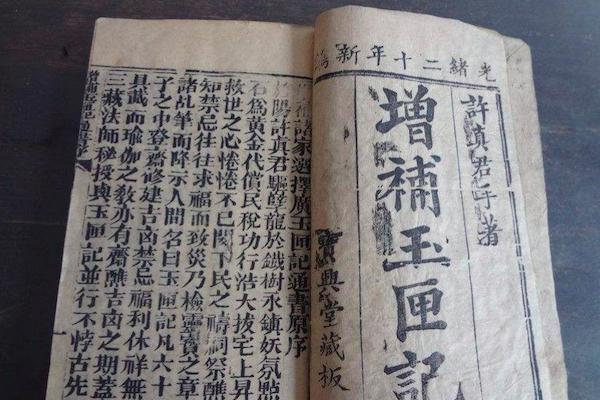 光緒二十年新
許真君手著
增補玉匣記
興堂藏板
諸家選擇廣玉匣記通書原序
陽許真君驅孽龍於鐵樹永鎮妖氛點
石爲黃金代償民稅功行浩大拔宅上昇
救世之心惓惓不已閔下民之禱祠祭醮
知禁忌往往求福而致災乃檢靈寶之章
諸乩筆而降示人間名曰玉匣記凡六十
子之中登齋修建吉凶禁忌福利休祥無
具載而瑜伽之教亦有齋醮吉凶之期蓋
三藏法師秘授與玉匣記並行不悖古先